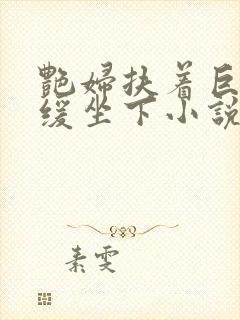 艷婦扶着巨
緩坐下小說
素雯